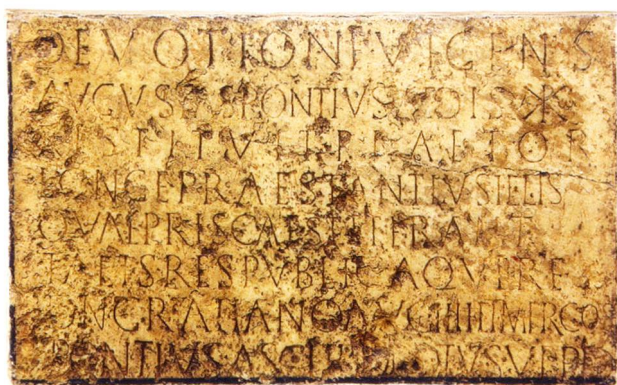 DEVOTIONE VIGENS
AVGVSTAS PONTIVS AEDIS ☧
RESTITVIT PRAETOR
LONGE PRAESTANTIVS ILLIS
QVAE PRISCAE STETERANT
TALIS RESPVBLICA QVERE
DN GRATIANO AVG IIII ET MER COS
PONTIVS ASCLEPIODOTVS VPP